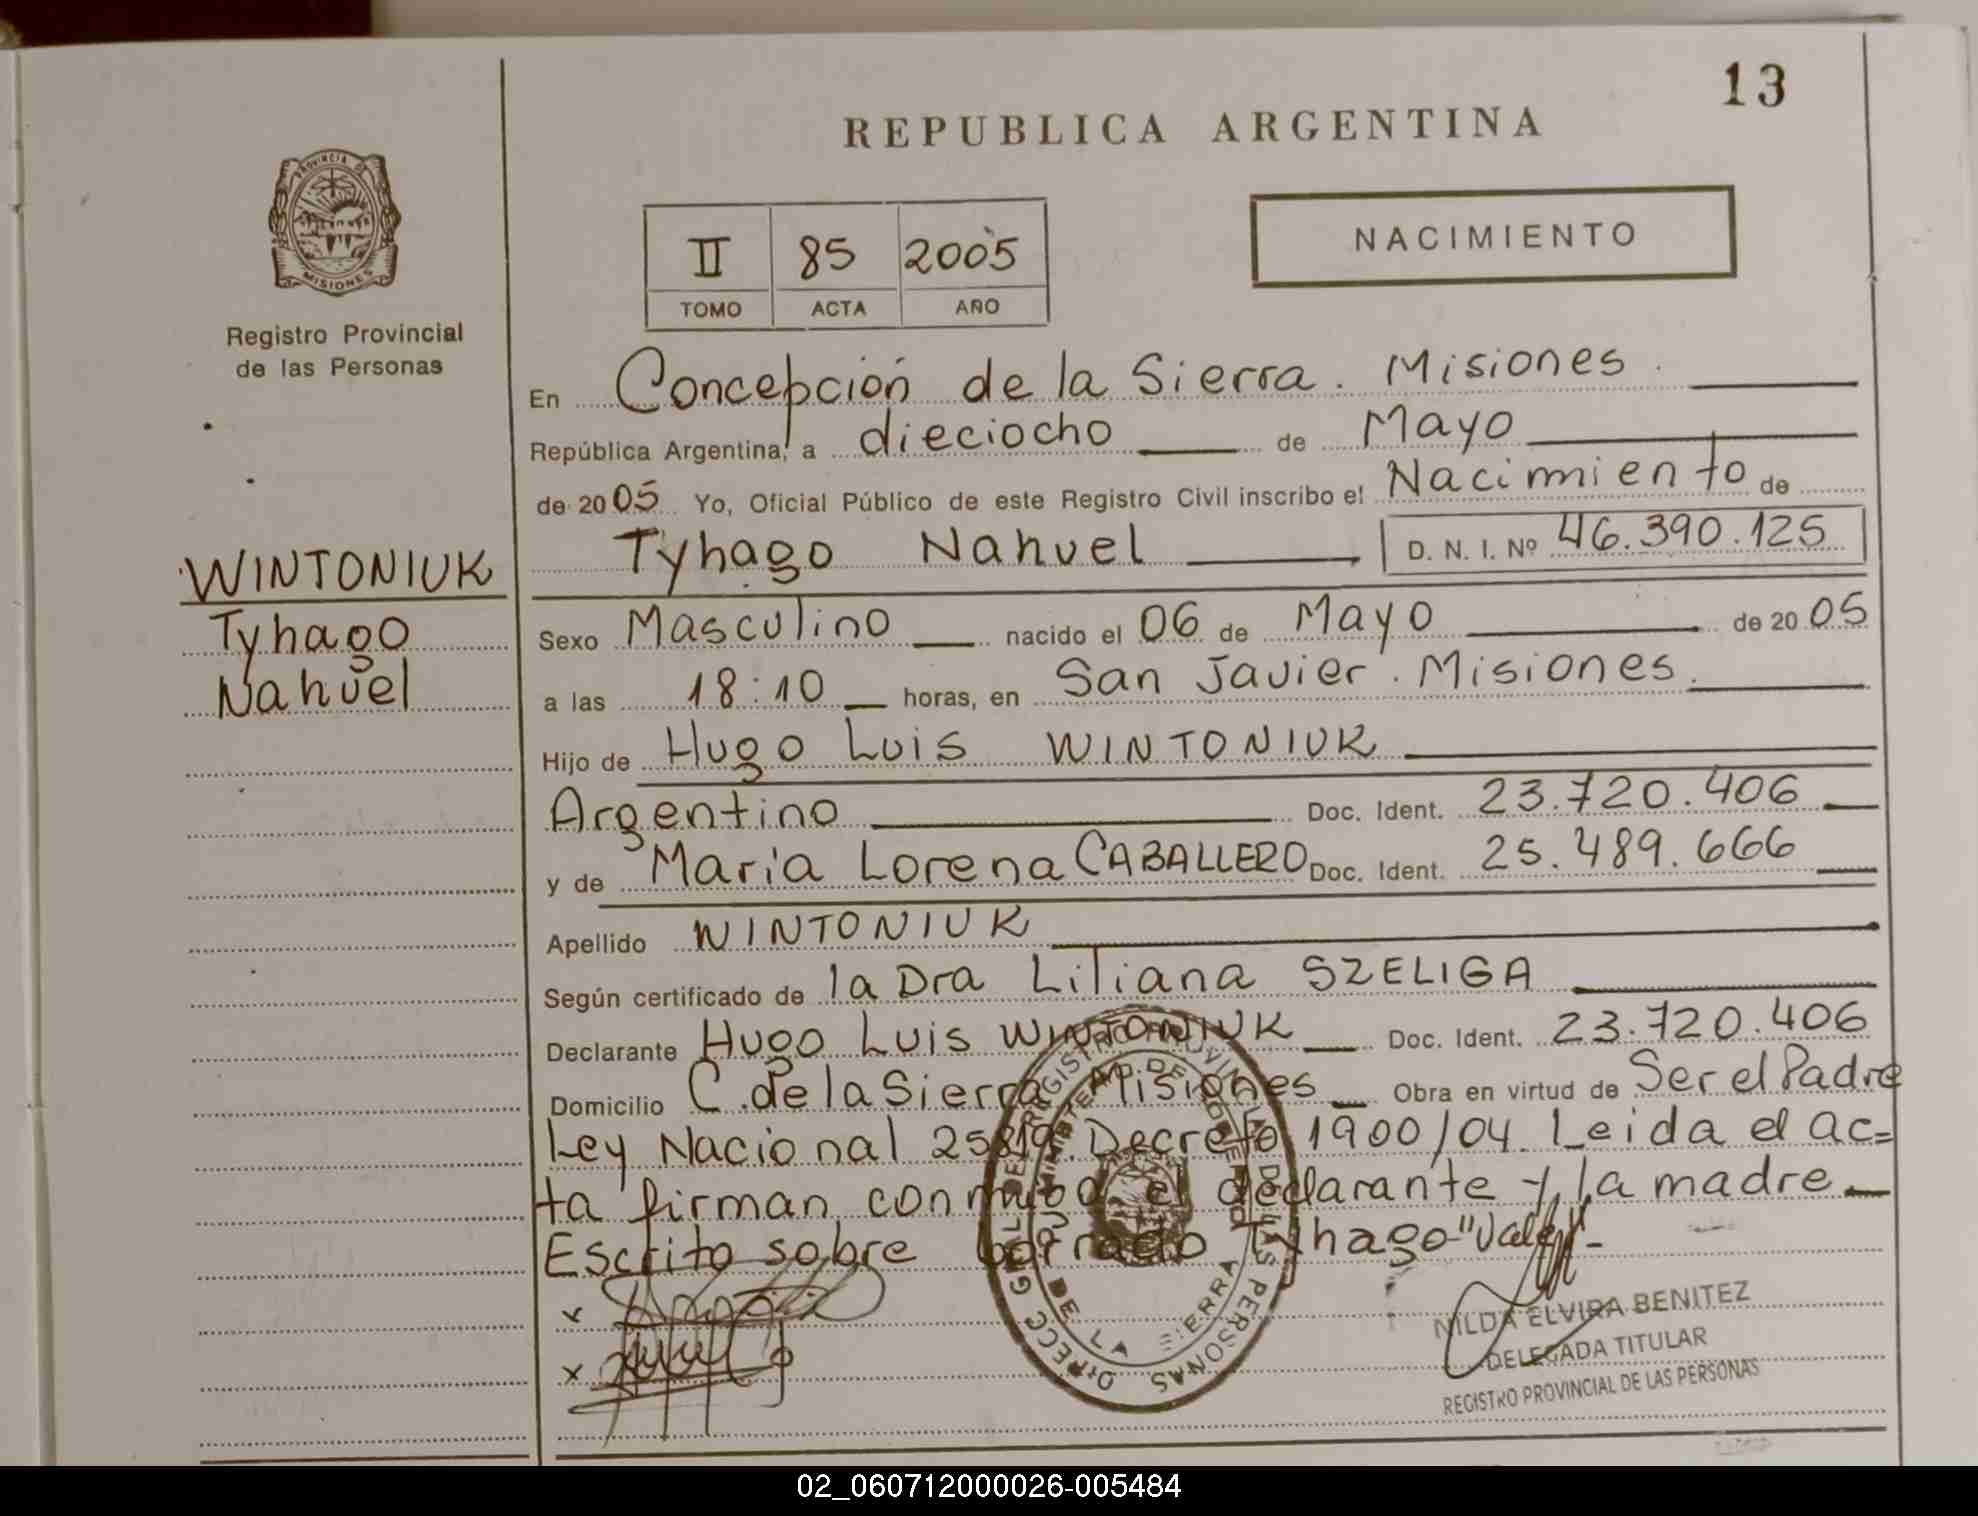 13
REPUBLICA ARGENTINA
PROVINCIA DE
MISIONES
Registro Provincial
de las Personas
II 85 2005
TOMO ACTA AÑO
NACIMIENTO
En Concepción de la Sierra. Misiones.
República Argentina, a dieciocho de Mayo
de 2005 Yo, Oficial Público de este Registro Civil inscribo el Nacimiento de
Tyhago Nahuel D. N. I. Nº 46.390.125
WINTONIUK
Tyhago
Nahuel
Sexo Masculino nacido el 06 de Mayo de 2005
a las 18:10 horas, en San Javier. Misiones.
Hijo de Hugo Luis WINTONIUK
Argentino Doc. Ident. 23.720.406
y de Maria Lorena CABALLERO Doc. Ident. 25.489.666
Apellido WINTONIUK
Según certificado de la Dra Liliana SZELIGA
Declarante Hugo Luis WINTONIUK Doc. Ident. 23.720.406
Domicilio C. de la Sierra Misiones Obra en virtud de Ser el Padre
Ley Nacional 25819. Decreto 1900/04. Leida el ac=
ta firman conmigo el declarante y la madre
Escrito sobre borrado Tyhago "Vale"-
x
x
NILDA ELVIRA BENITEZ
DELEGADA TITULAR
REGISTRO PROVINCIAL DE LAS PERSONAS
02_060712000026-005484